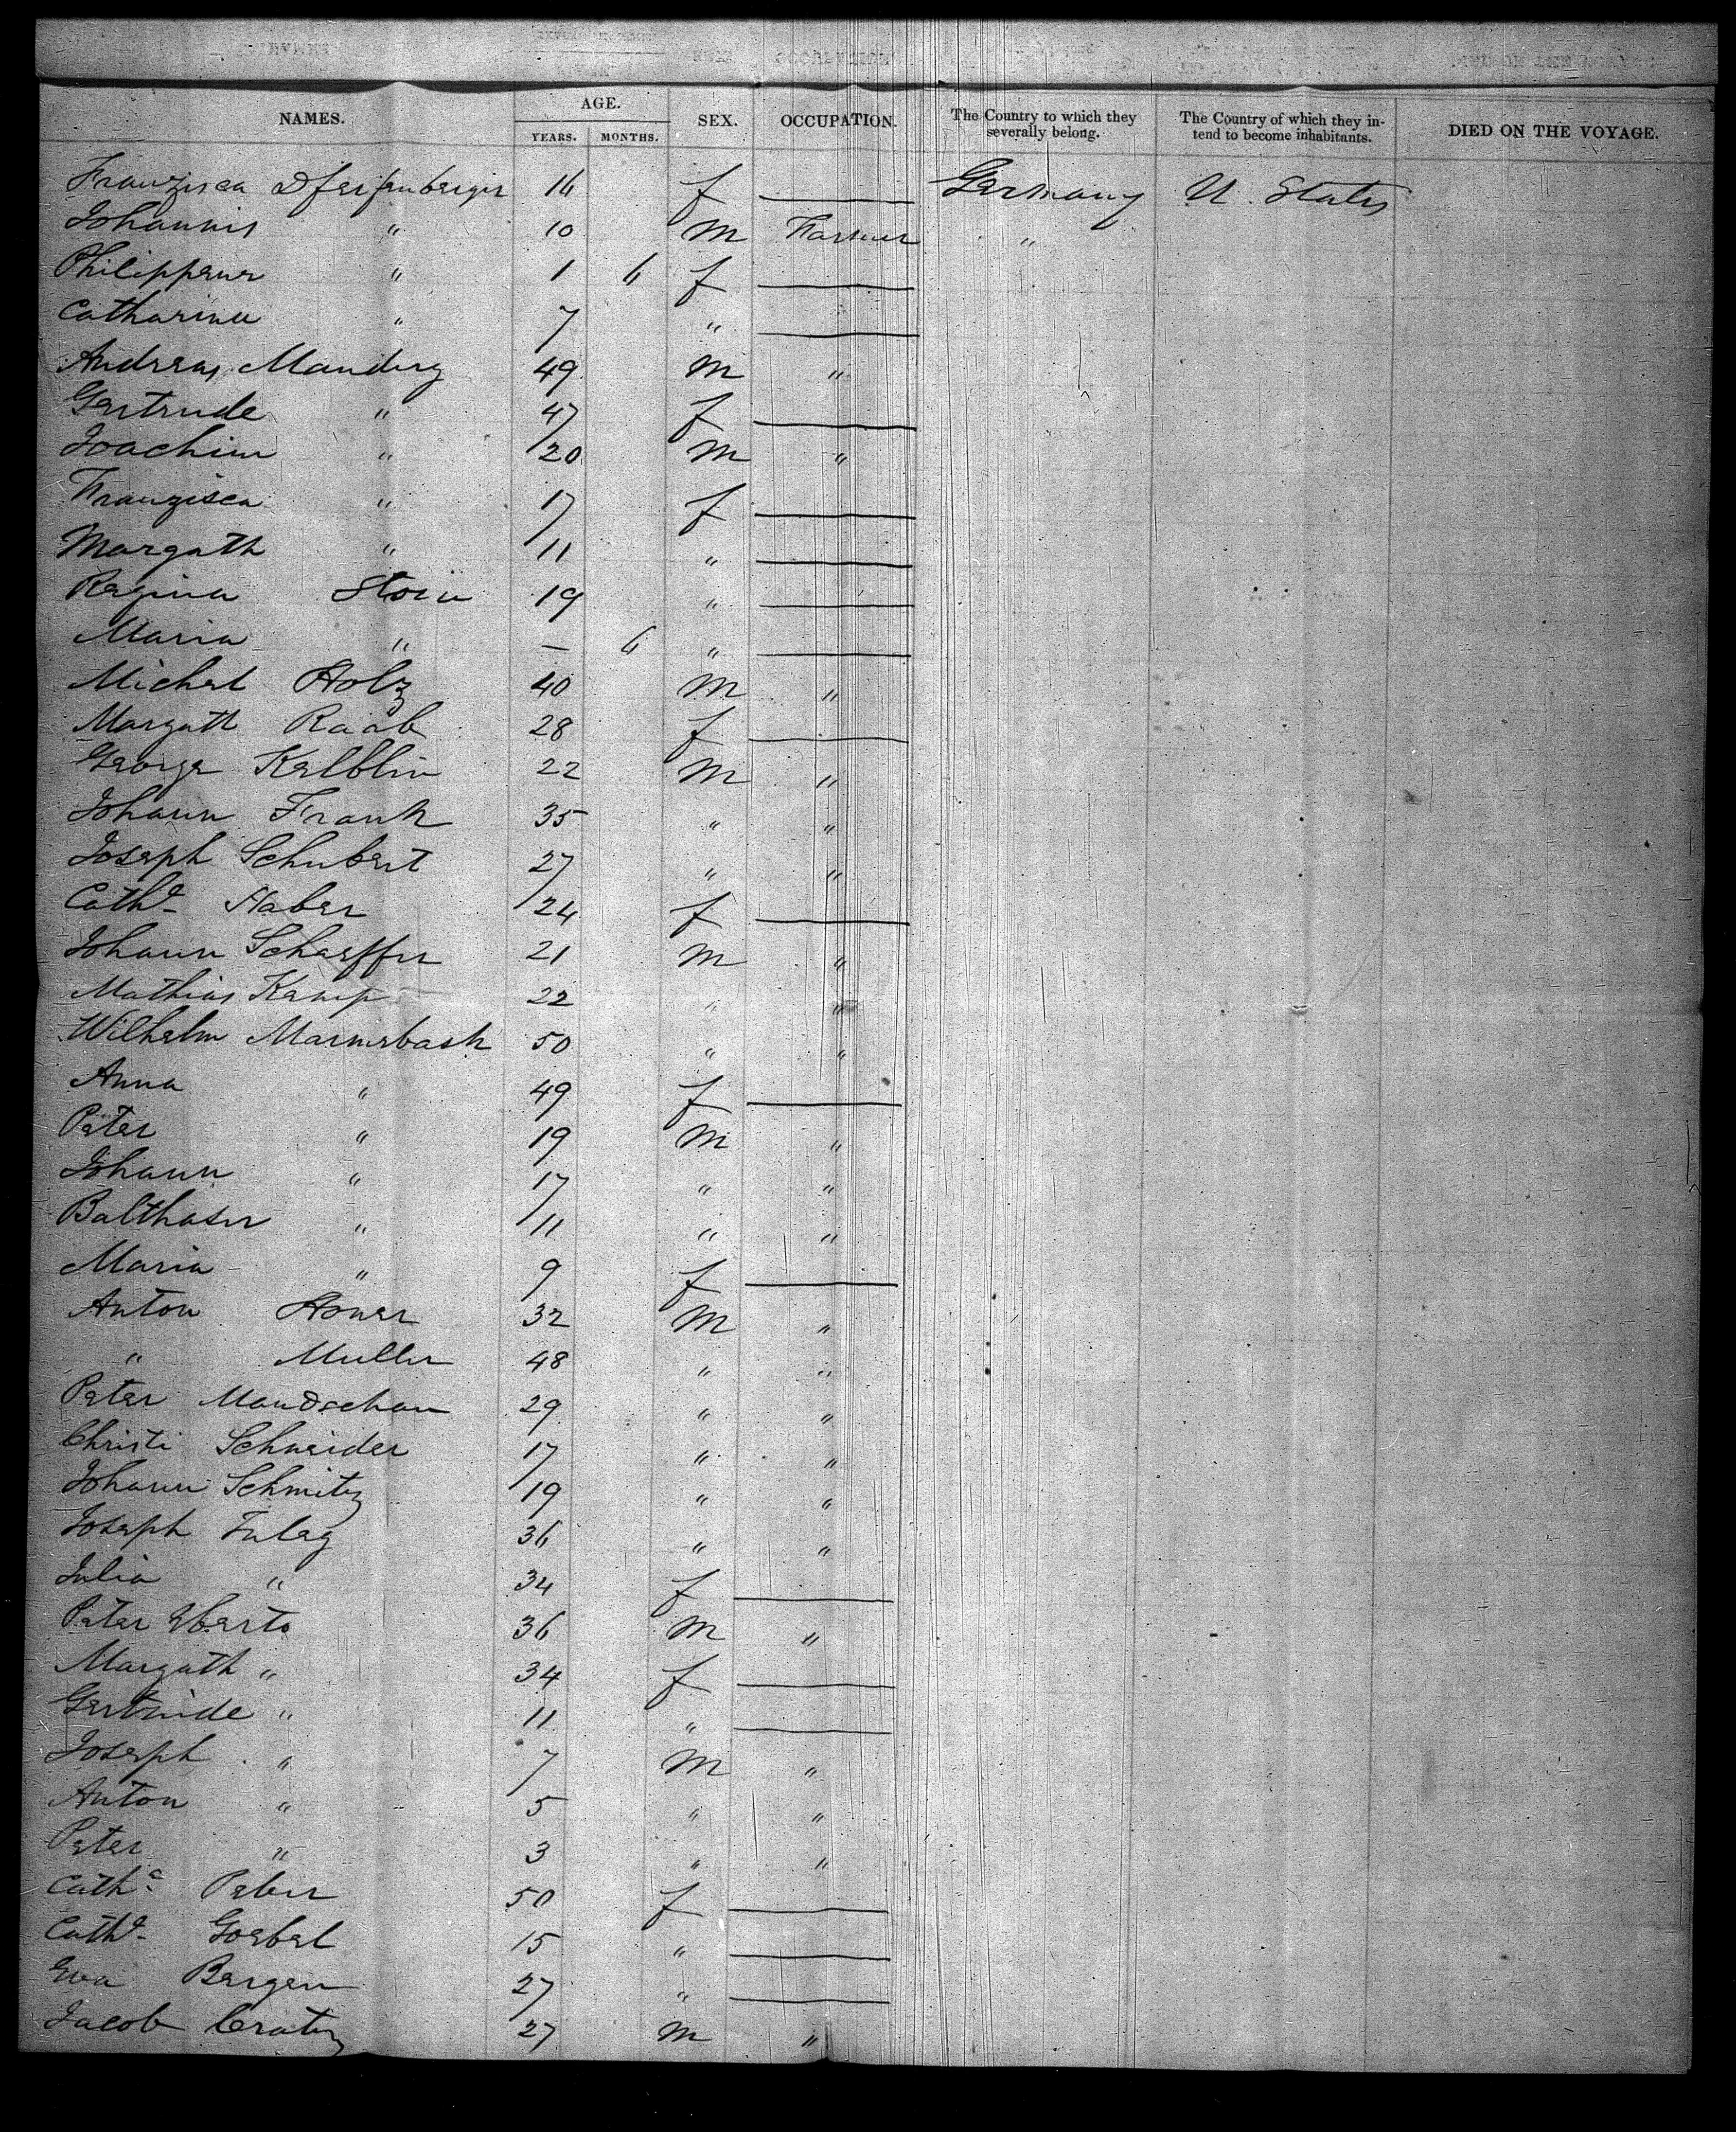 NAMES. AGE. YEARS. MONTHS. SEX. OCCUPATION. The Country to which they severally belong. The Country of which they intend to become inhabitants. DIED ON THE VOYAGE.
Franzisca 16 f — Germany U. States
Johannis " 10 m Farmer "
" 1 6 f —
Catharina " 7 " —
Andreas 49 m "
Gertrude " 47 f —
Joachim " 20 m "
Franzisca " 17 f —
Margath " 11 " —
Regina Stein 19 " —
Maria " — 6 " —
Michel Holz 40 m "
Margath Raab 28 f —
George Kelblin 22 m "
Johann Frank 35 " "
Joseph Schubert 27 " "
Catha Haber 24 f —
Johann Schaeffer 21 m "
Mathias Kamp 22 " "
Wilhelm 50 " "
Anna " 49 f —
Peter " 19 m "
Johann " 17 " "
Balthaser " 11 " "
Maria " 9 f —
Anton 32 m "
" Muller 48 " "
Peter 29 " "
Christi Schneider 17 " "
Johann Schmitz 19 " "
Joseph 36 " "
Julia " 34 f —
Peter Eberts 36 m "
Margath " 34 f —
Gertrude " 11 " —
Joseph " 7 m "
Anton " 5 " "
Peter " 3 " "
Catha 50 f —
Catha Goebel 15 " —
Eva Bergen 27 " —
Jacob Cratz 27 m "